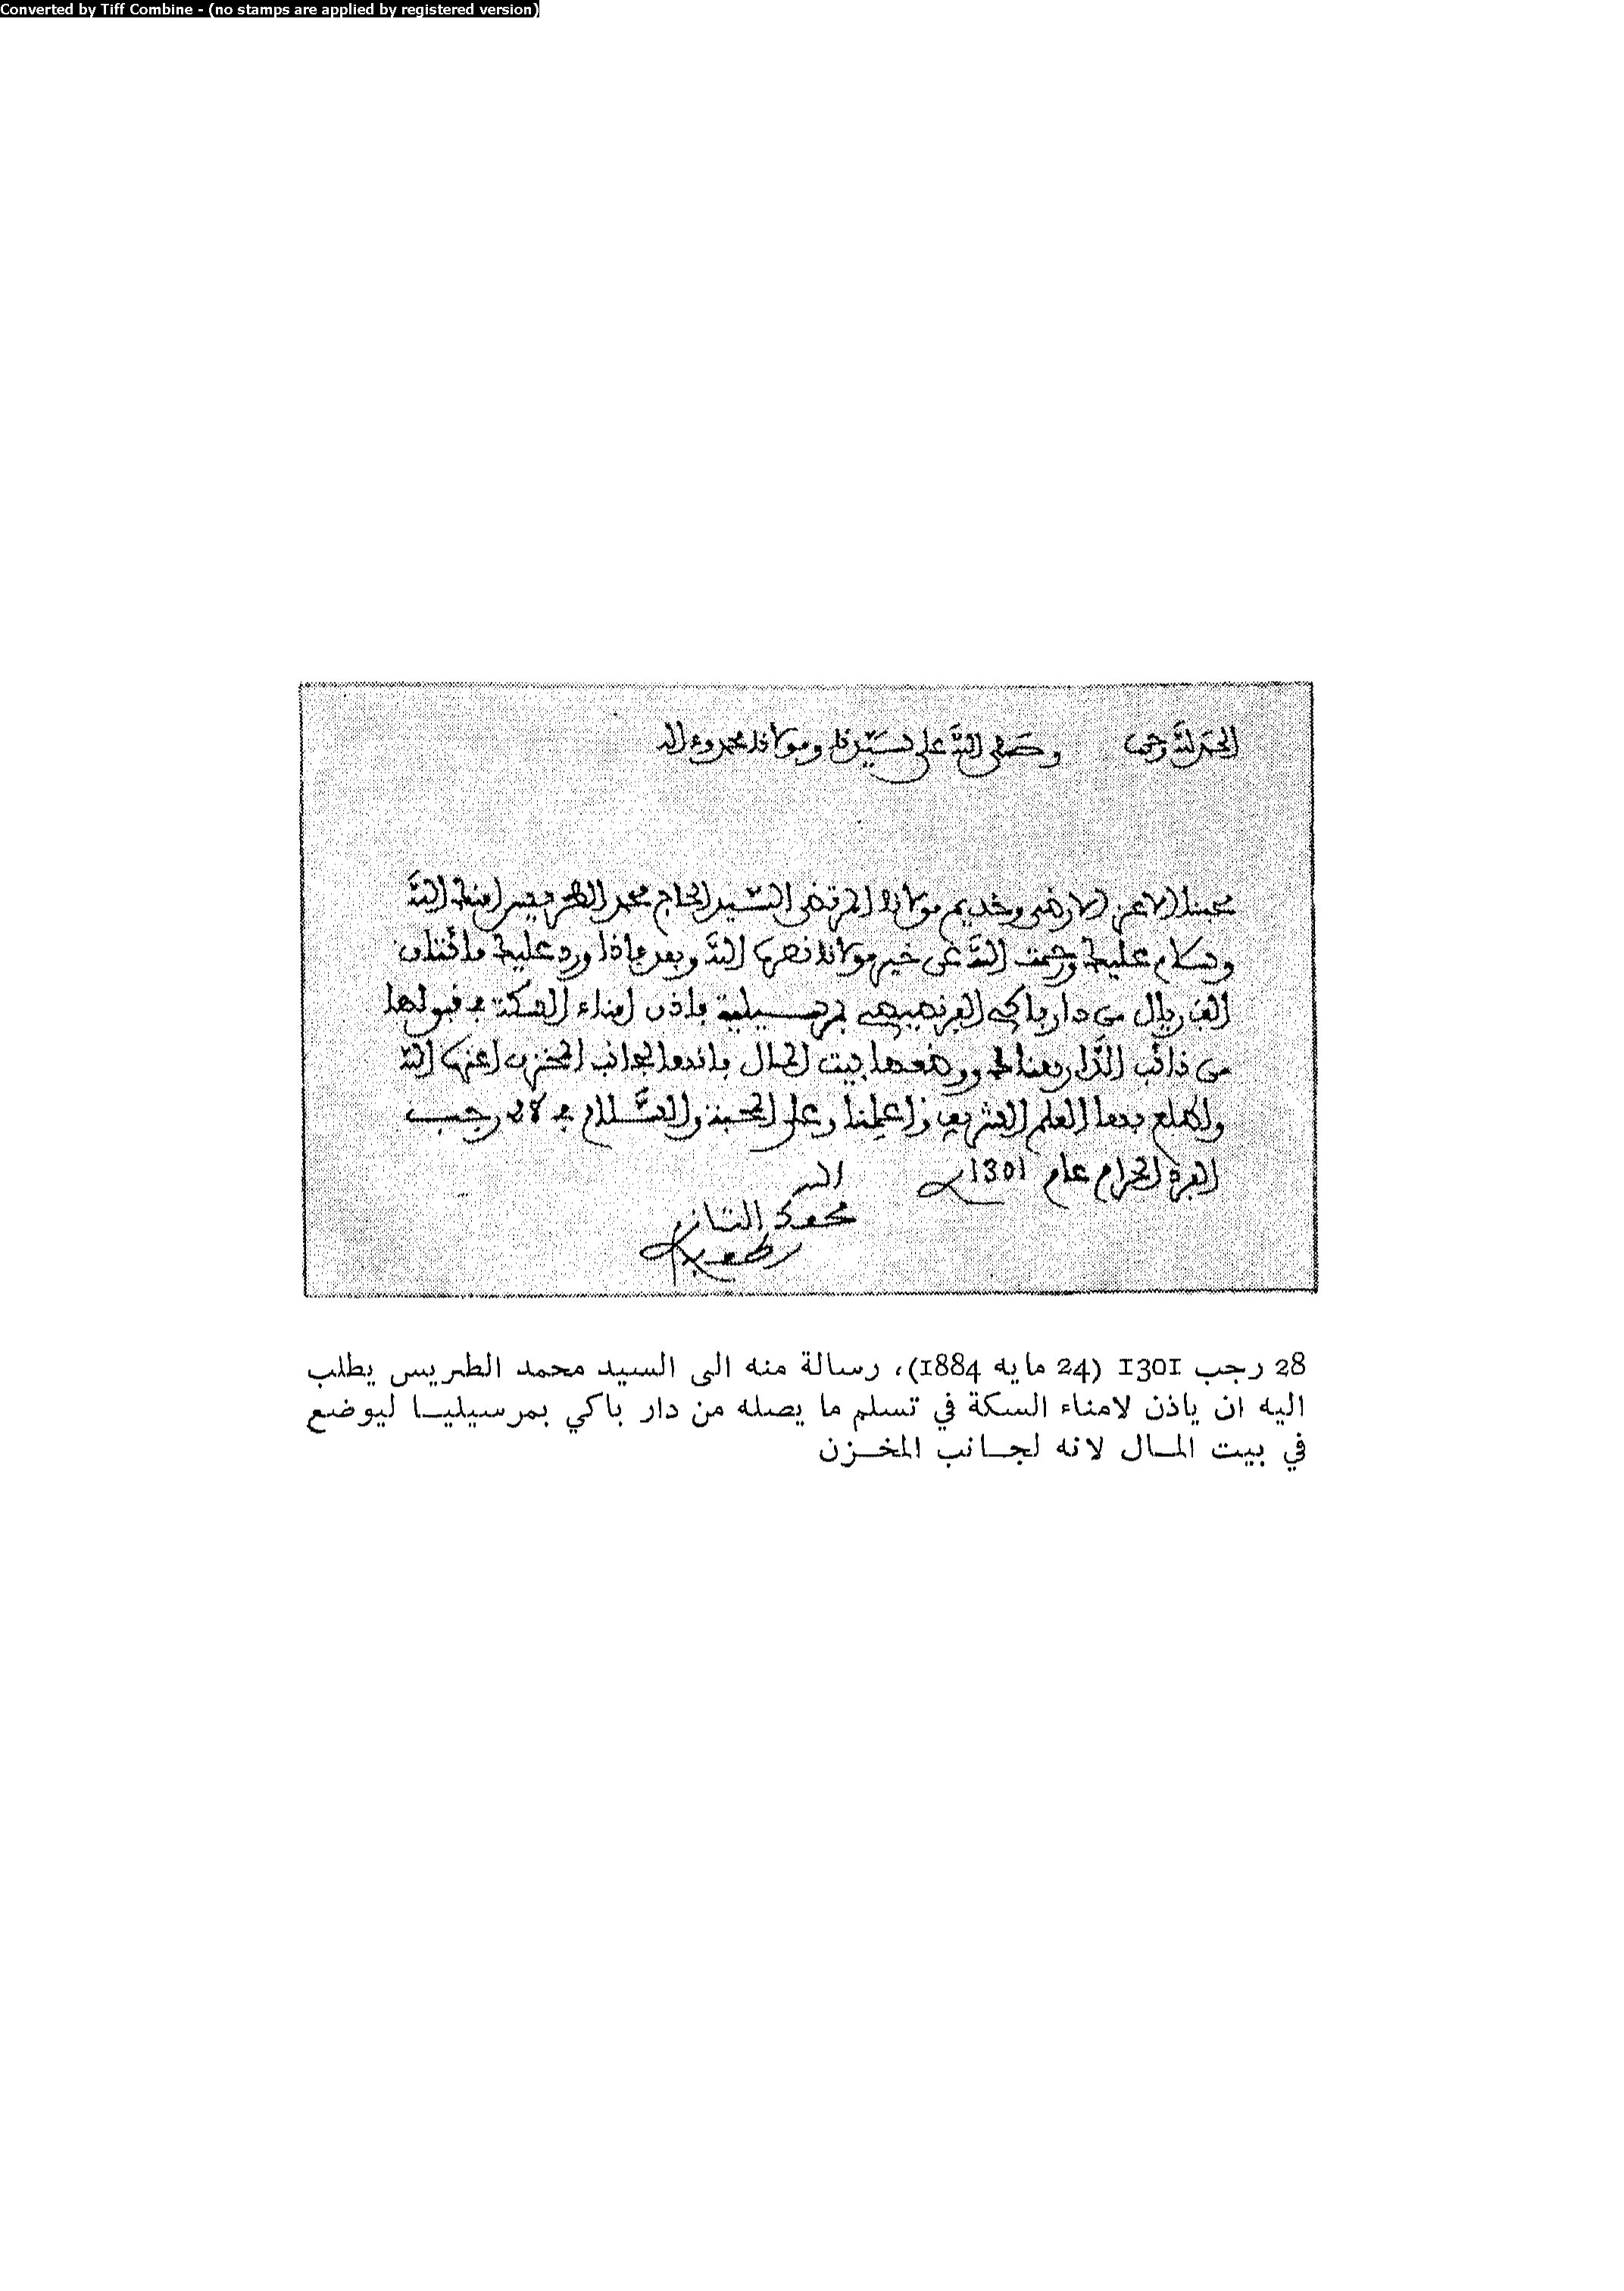 Converted by Tiff Combine - (no stamps are applied by registered version)
الحمد لله وحده وصلى الله على سيدنا ومولانا محمد وءاله
محبنا الاعز الارضى وخديم مولانا المرتضى السيد الحاج محمد الطريس امنك الله
وسلام عليك ورحمت الله عن خير مولانا نصره الله وبعد فاذا ورد عليك مائتان
الف ريال من دار باكي الفرنصيصي بمرسيلية فاذن امناء السكة في قبولها
من نائب الدار هناك ووضعها بيت المال فانها لجانب المخزن اعزه الله
واطلع بها العلم الشريف واعلمنا وعلى المحبة والسلام في 28 رجب
الفرد الحرام عام 1301
محمد التازي
28 رجب 1301 (24 مايه 1884)، رسالة منه الى السيد محمد الطريس يطلب
اليه ان ياذن لامناء السكة في تسلم ما يصله من دار باكي بمرسيليا ليوضع
في بيت المال لانه لجانب المخزن